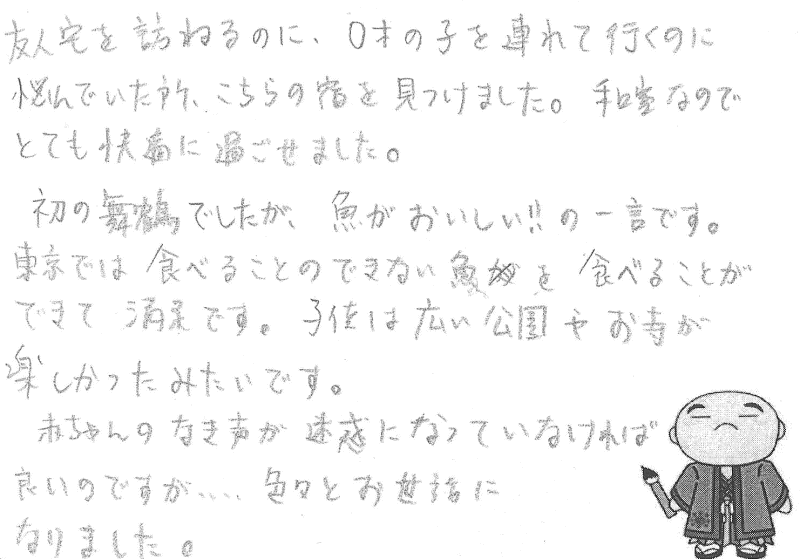 友人宅を訪ねるのに、0才の子を連れて行くのに
悩んでいた所、こちらの宿を見つけました。和室なので
とても快適に過ごせました。
初の舞鶴でしたが、魚がおいしい!!の一言です。
東京では食べることのできない魚を食べることが
できて満足です。子供は広い公園やお寺が
楽しかったみたいです。
赤ちゃんのなき声が迷惑になっていなければ
良いのですが、... 色々とお世話に
なりました。